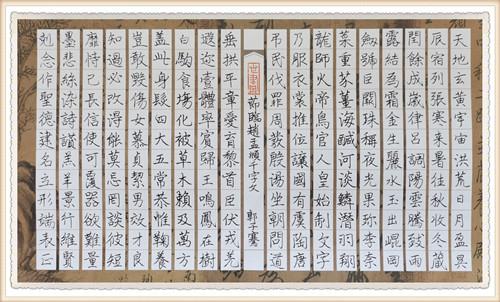 天地玄黃宇宙洪荒日月盈昃
辰宿列張寒來暑往秋收冬藏
閏餘成歲律呂調陽雲騰致雨
露結為霜金生麗水玉出崐岡
劍號巨闕珠稱夜光果珍李柰
菜重芥薑海鹹河淡鱗潛羽翔
龍師火帝鳥官人皇始制文字
乃服衣裳推位讓國有虞陶唐
弔民伐罪周發殷湯坐朝問道
節臨趙孟頫千字文
垂拱平章愛育黎首臣伏戎羌
遐邇壹體率賓歸王鳴鳳在樹
白駒食場化被草木賴及萬方
蓋此身髮四大五常恭惟鞠養
豈敢毀傷女慕貞絜男效才良
知過必改得能莫忘罔談彼短
靡恃己長信使可覆器欲難量
墨悲絲染詩讚羔羊景行維賢
剋念作聖德建名立形端表正